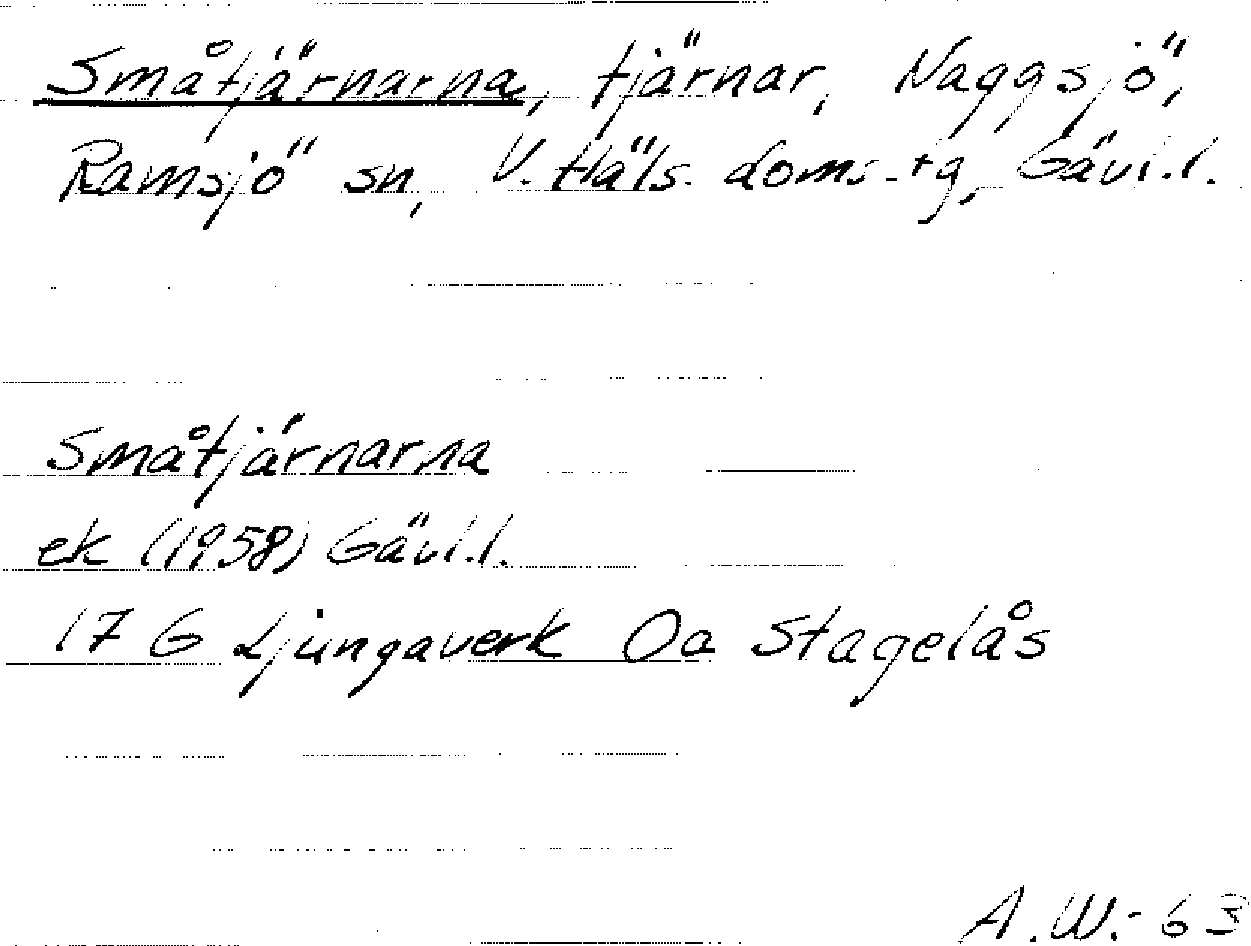 Småtjärnarna, tjärnar, Naggsjö,
Ramsjö sn, V. Häls. doms.-tg, Gävl.l.
Småtjärnarna
ek (1958) Gävl.l.
17 G Ljungaverk Oa Stagelås
A.W.-63